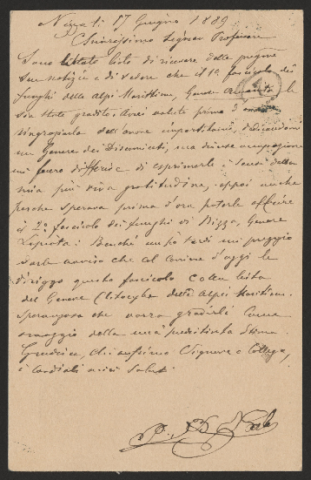 Nizza li 17 Giugno 1889
Chiarissimo Signor Professore
Sono lietato di ricevere delle pregne
sue notizie e di vedere che il 1o fascicolo dei
funghi delle Alpi Marittime, Genere Amanita, le
sia stato gradito; avrei voluto prima d'
ringraziarla dell'onore impartitami, dedicandomi
un Genere dei Discomiceti, ma diverse occupazioni
mi fecero differire di esprimerle i sensi della
mia più viva gratitudine, eppoi anche
perché sperava prima d'ora poterle offrire
il 2o fascicolo dei funghi di Nizza, Genere
Lepiota; Benché un pò tardi mi preggio
darle avviso che col corriere d'oggi le
dirigo questo fascicolo colla lista
del Genere Clitocybe delle Alpi Marittime.
Speranzoso che vorrà gradirli come
omaggio della mia predistinta Stima
Gradisca, Chiarissimo Signore e Collega,
i cordiali miei saluti